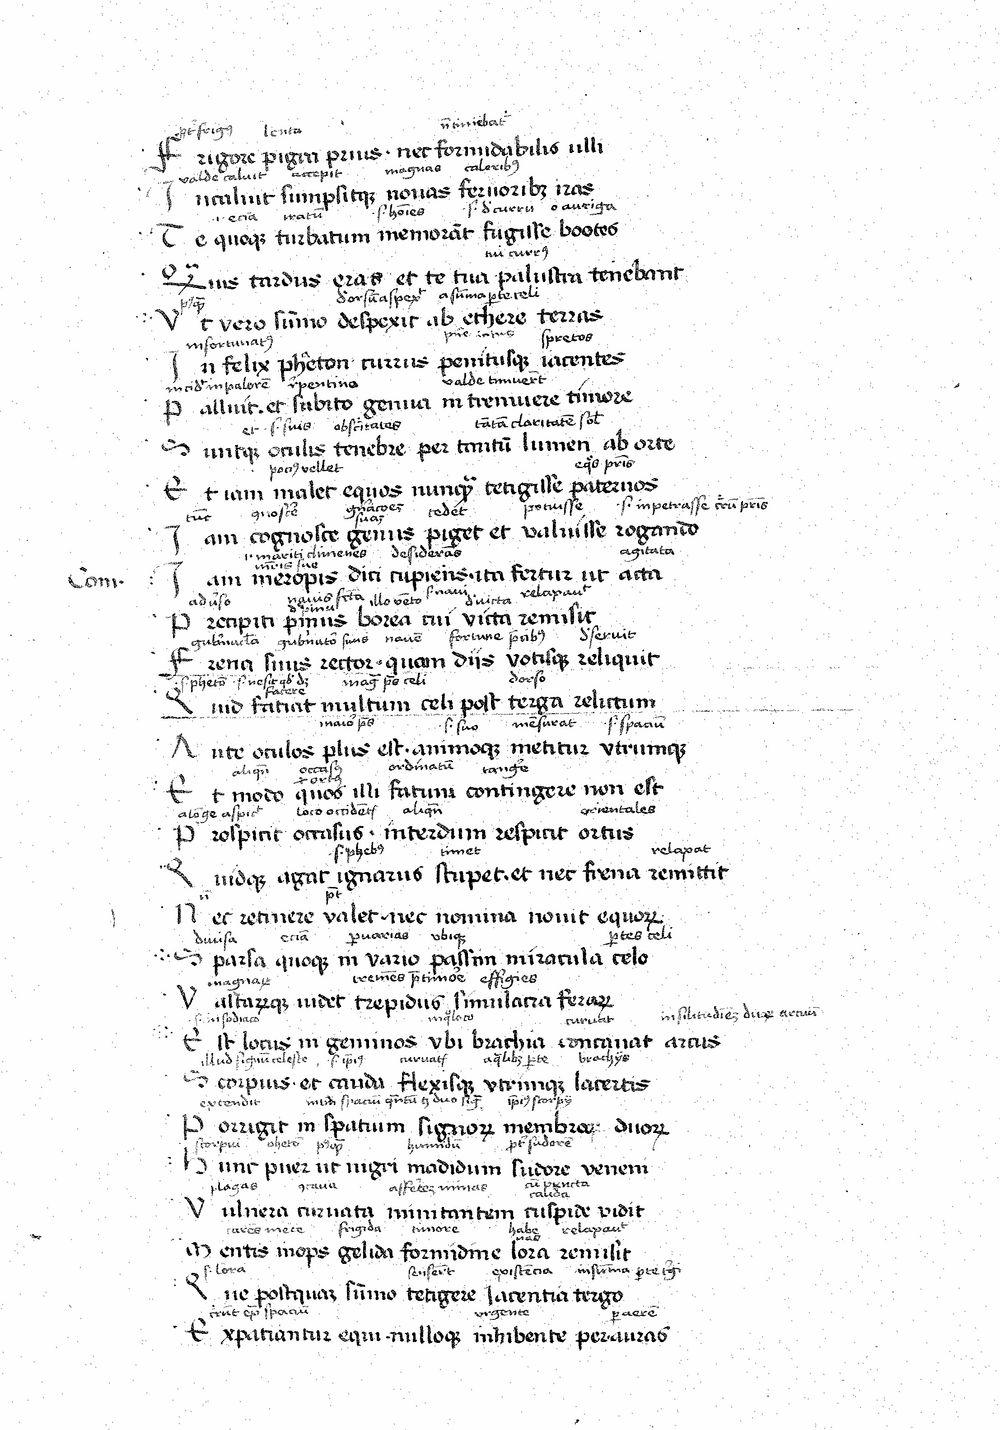 ꝑt frigꝰ lenta n̄ timebat᷑
Frigore pigra prius · nec formidabilis ulli
valde caluit accepit magnas caloribꝰ
Incaluit sumpsitqꝫ nouas feruoribꝫ iras
.i. eciā iratū .s. hōies .s. d̓ curru o auriga
Te quoqꝫ turbatum memorāt fugisse bootes
tui currꝰ
Quis tardus eras et te tua palustra tenebant
d̓orsū aspex̓ a sūma ꝑte celi
Vt vero sūmo despexit ab ethere terras
infortunatꝰ spretos
In felix phēton currus penitusqꝫ iacentes
incid̓ in palorē rēpentino valde timuer̄t
Palluit . et subito genua in tremuere timore
et .s. suis obscͥtates tātā claritatē sol̓
Suntqꝫ oculis tenebre per tantū lumen ab orte
pociꝰ vellet eqͦs pr̄is
Et iam malet equos nunqꝫ tetigisse paternos
tūc gnosce͛ suaꝫ tedet potuisse .s. inpetrasse cūrū pr̄is
Iam cognosce genus piget et valuisse rogando
.i. mariti climenes desiderās agitata
mr̄is sue
Com̄. Iam meropis dici cupiens . ita fertur ut acta
adu͛so nauis illo vēto .s. naui d̓uicta relaxauͭ
Precipiti pinus borea cui victa remisit
gub̓nacl̄a gub̓nato͛ suus nauē fortune p̄cibꝰ d̓seruit
Frena suus rector · quam diis votisqꝫ reliquit
.s. phetō .s. nesit facere mag̓ ꝑs celi dorso
Quid faciat multum celi post terga relictum
maio͛ ꝑs .s. suo mēsurat .s. spaciū
Ante oculos plus est · animoqꝫ metitur utrumqꝫ
aliqn̄ occasꝰ ordinatū tange͛
Et modo quos illi fatum contingere non est
a lōge aspic̓ loco occidēt̓ aliqn̄ orientales
Prospicit occasus · interdum respicit ortus
.s. phebꝰ timet relaxat
Quidqꝫ agat ignarus stupet . et nec frena remittit
n̄ pt̄
Nec retinere valet · nec nomina nouit equoꝝ
diuisa eciā ꝑ uarias ubiqꝫ ꝑtes celi
Sparsa quoqꝫ in vario passim miracula celo
magnaꝝ tremēs p̄ timore effigies
Vastaꝝqꝫ uidet trepidus simulacra feraꝝ
.s. in sodiaco in qͦ loco curuat in silitudieꝫ duoꝝ arcuū
Est locus in geminos vbi brachia concauat arcus
illud signū celeste .s. ip̄iꝰ curuat̓ aqͣlibꝫ ꝑte brachijs
Scorpius · et cauda flexisqꝫ vtrimqꝫ lacertis
extendit ip̄iꝰ scorpij
Porrigit in spatium signoꝝ membra duoꝝ
scorpiū phetō pꝰqꝫ humidū ꝑt sudorē
Hunc puer ut nigri madidum sudore veneni
plagas ꝯcaua affere͛ minas cū pūcta
cauda
Vulnera curuata minitantem cuspide vidit
carēs mēte frigida timore habenas relaxauͭ
Mentis inops gelida formidine lora remisit
.s. lora senser̄t existēcia in sūma ꝑte t̓gi
Que postquaꝫ sūmo tetigere iacentia tergo
spaciū urgente ꝑ aerē
Expatiantur equi · nulloqꝫ inhibente per auras